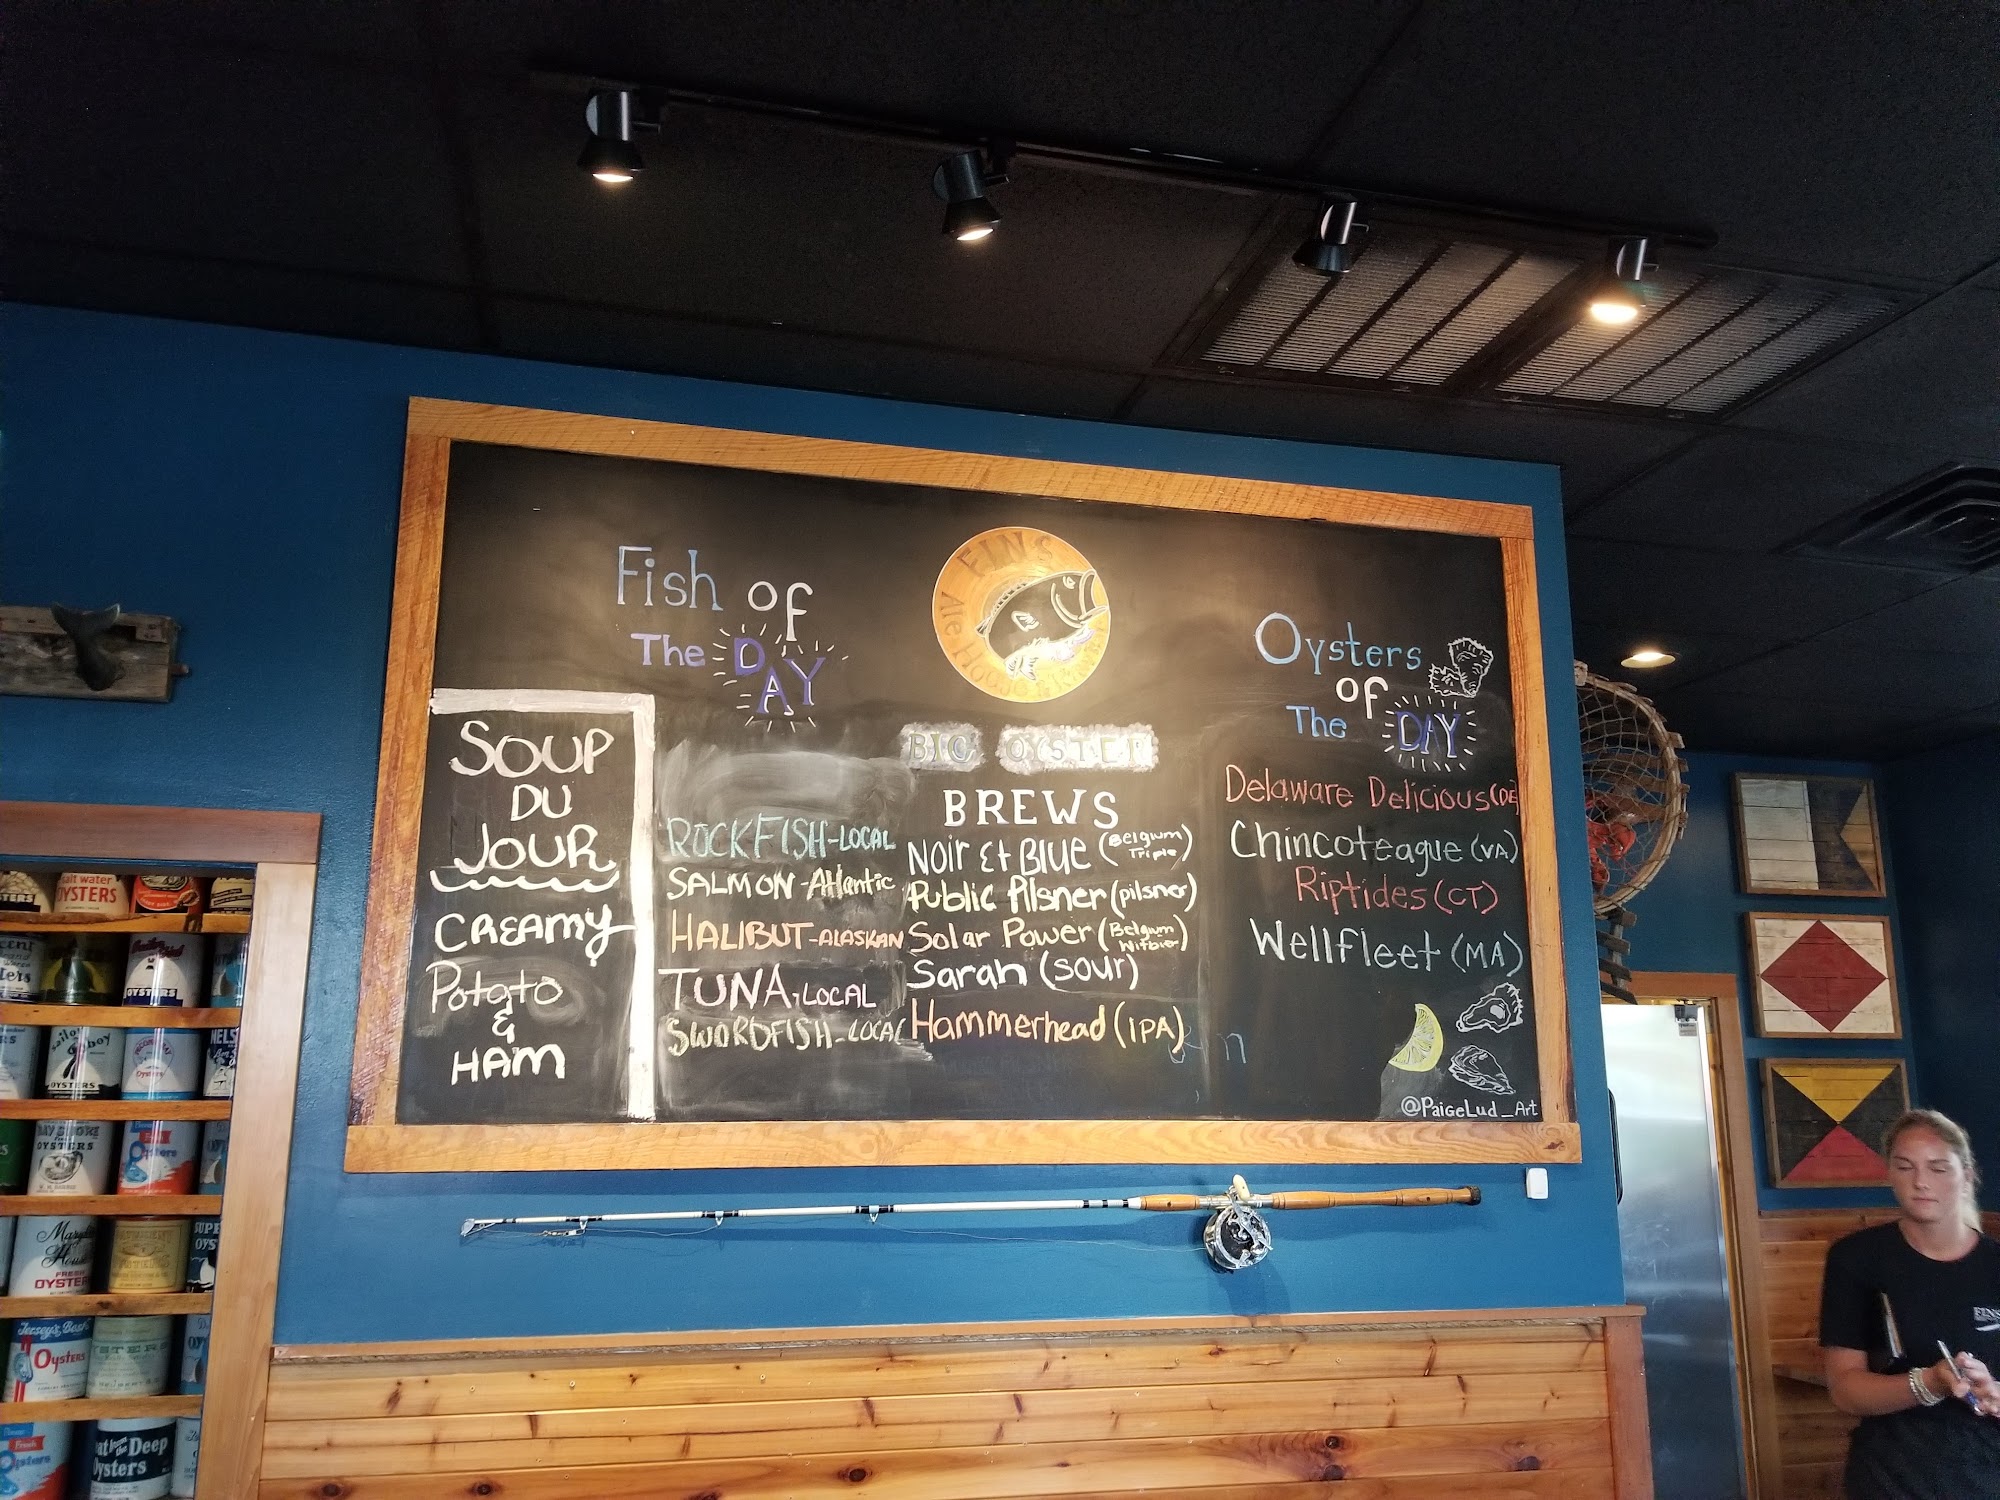 Fish of
The DAY
FINS
Ale House
Oysters
of
The DAY
SOUP
DU
JOUR
CREAMY
Potato
&
HAM
ROCKFISH-LOCAL
SALMON-Atlantic
HALIBUT-ALASKAN
TUNA-LOCAL
SWORDFISH-LOCAL
BIG OYSTER
BREWS
Noir Et Blue (Belgium Triple)
Public Pilsner (pilsner)
Solar Power (Belgium Witbier)
Sarah (sour)
Hammerhead (IPA)
Delaware Delicious (DE)
Chincoteague (VA)
Riptides (CT)
Wellfleet (MA)
@PaigeLud_Art
salt water
OYSTERS
OYSTERS
sailor boy
OYSTERS
Oysters
NELS
BAY SHORE
OYSTERS
Fresh
Oysters
FRESH
OYSTER
SUPE
OYS
Jersey's Best
Oysters
Fresh
Oysters
at from the Deep
Oysters
FINS